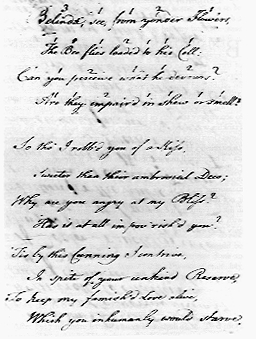 Belinda, see, from yonder Flowers,
The Bee flies loaded to his Cell:
Can you perceive what he devours?
Are they impair'd in shew or smell?
So tho' I robb'd you of a Kiss,
Sweeter than their ambrosial Dew;
Why are you angry at my Bliss?
Has it at all impov'rish'd you?
'Tis by this Cunning I contrive,
In spite of your unkind Reserve,
To keep my famish'd Love alive,
Which you inhumanly would starve.